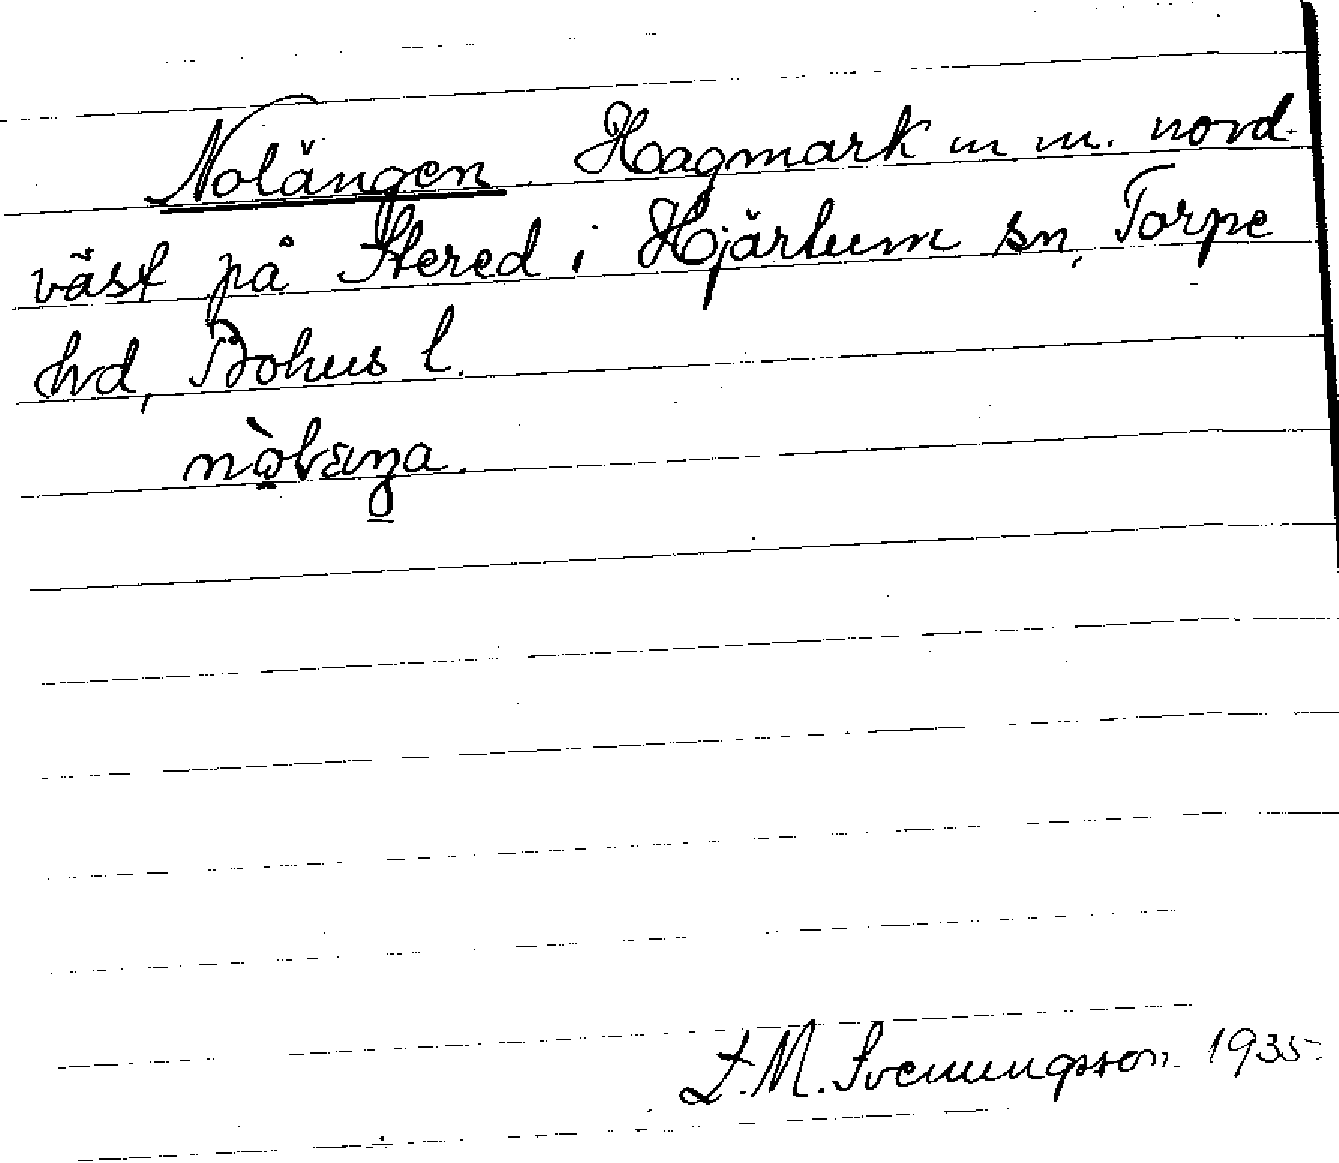 Nolängen. Hagmark m m. nord-
väst på Stered i Hjärtum sn, Torpe
hd, Bohus l.
L.M. Svenungsson. 1935.